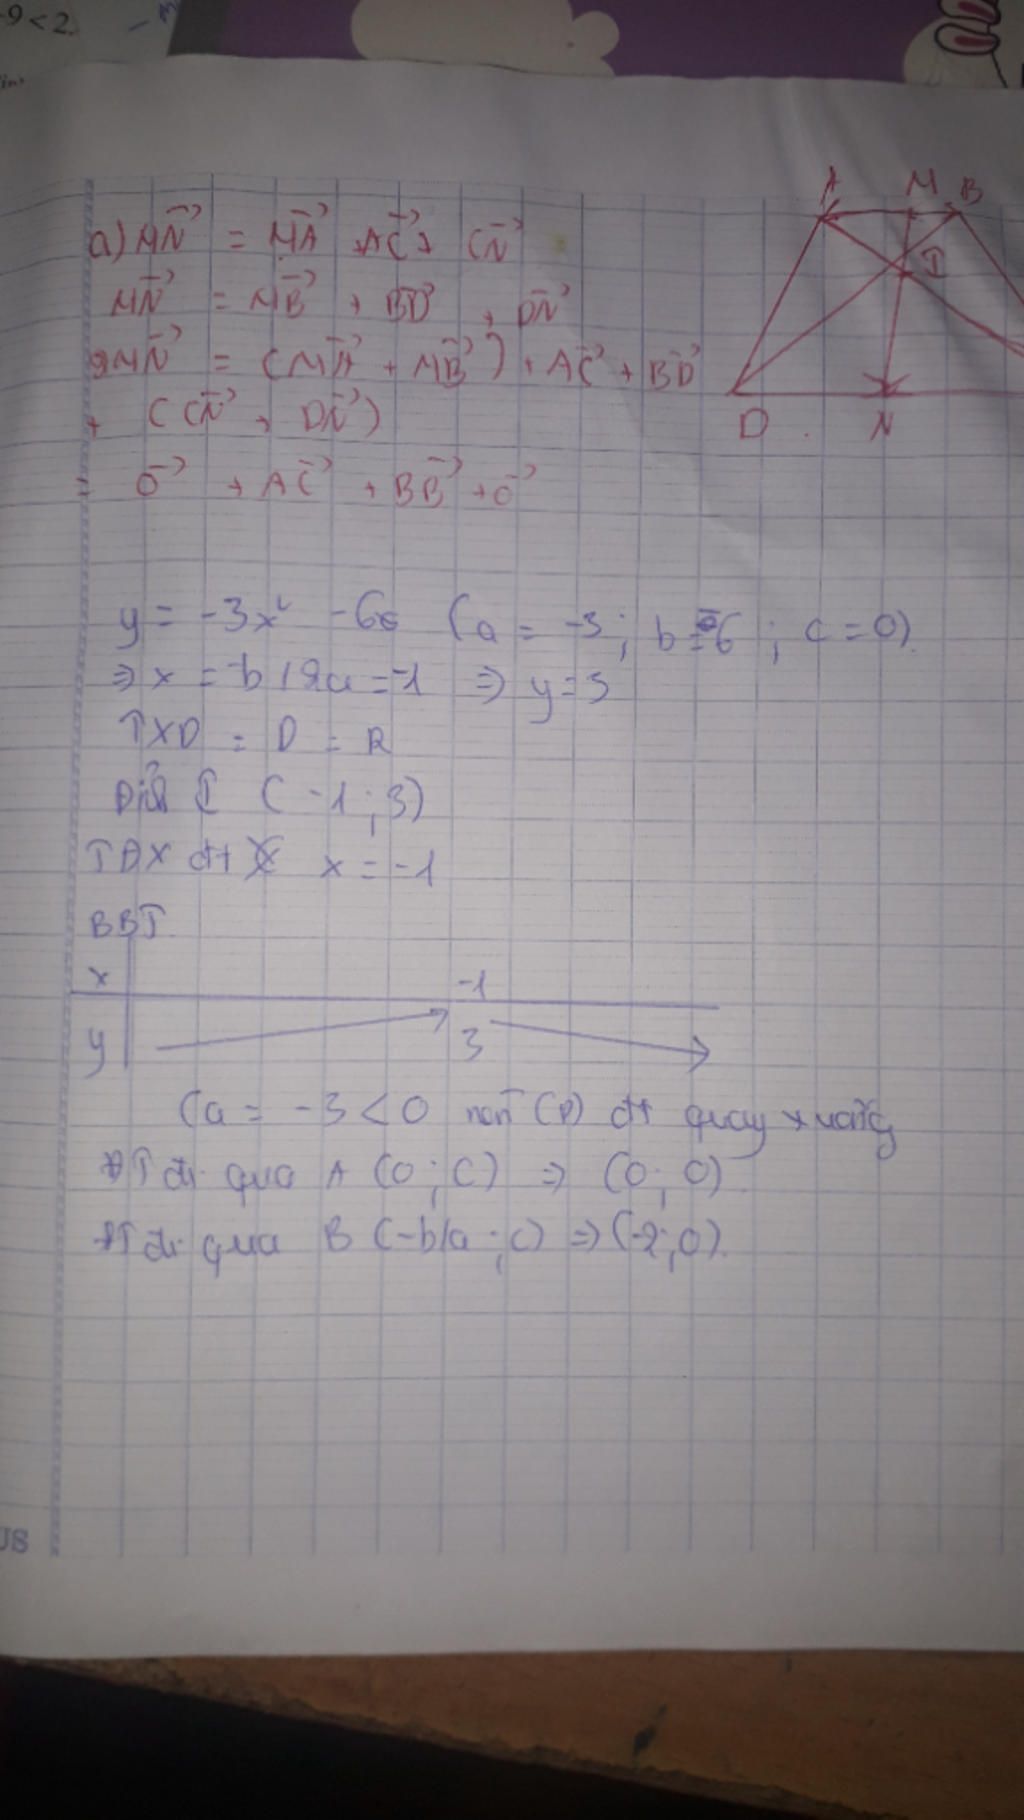 -9<2.
A M B
a) MN→ = MA→ + AC→ + CN→
I
MN→ = MB→ + BD→ + DN→
2MN→ = (MA→ + MB→) + AC→ + BD→
+ (CN→ + DN→)
D N
= O→ + AC→ + BB→ + O→
y = -3x² - 6x (a = -3; b = -6; c = 0).
⇒ x = -b/2a = -1 ⇒ y = 3
TXD = D = R
Đỉnh I (-1; 3)
TĐX đt x = -1
BBT
x -1
y 3
(a = -3 < 0 nên (P) đt quay xuống
ĐT đi qua A (0; C) ⇒ (0; 0)
ĐT đi qua B (-b/a; c) ⇒ (-2; 0).
US